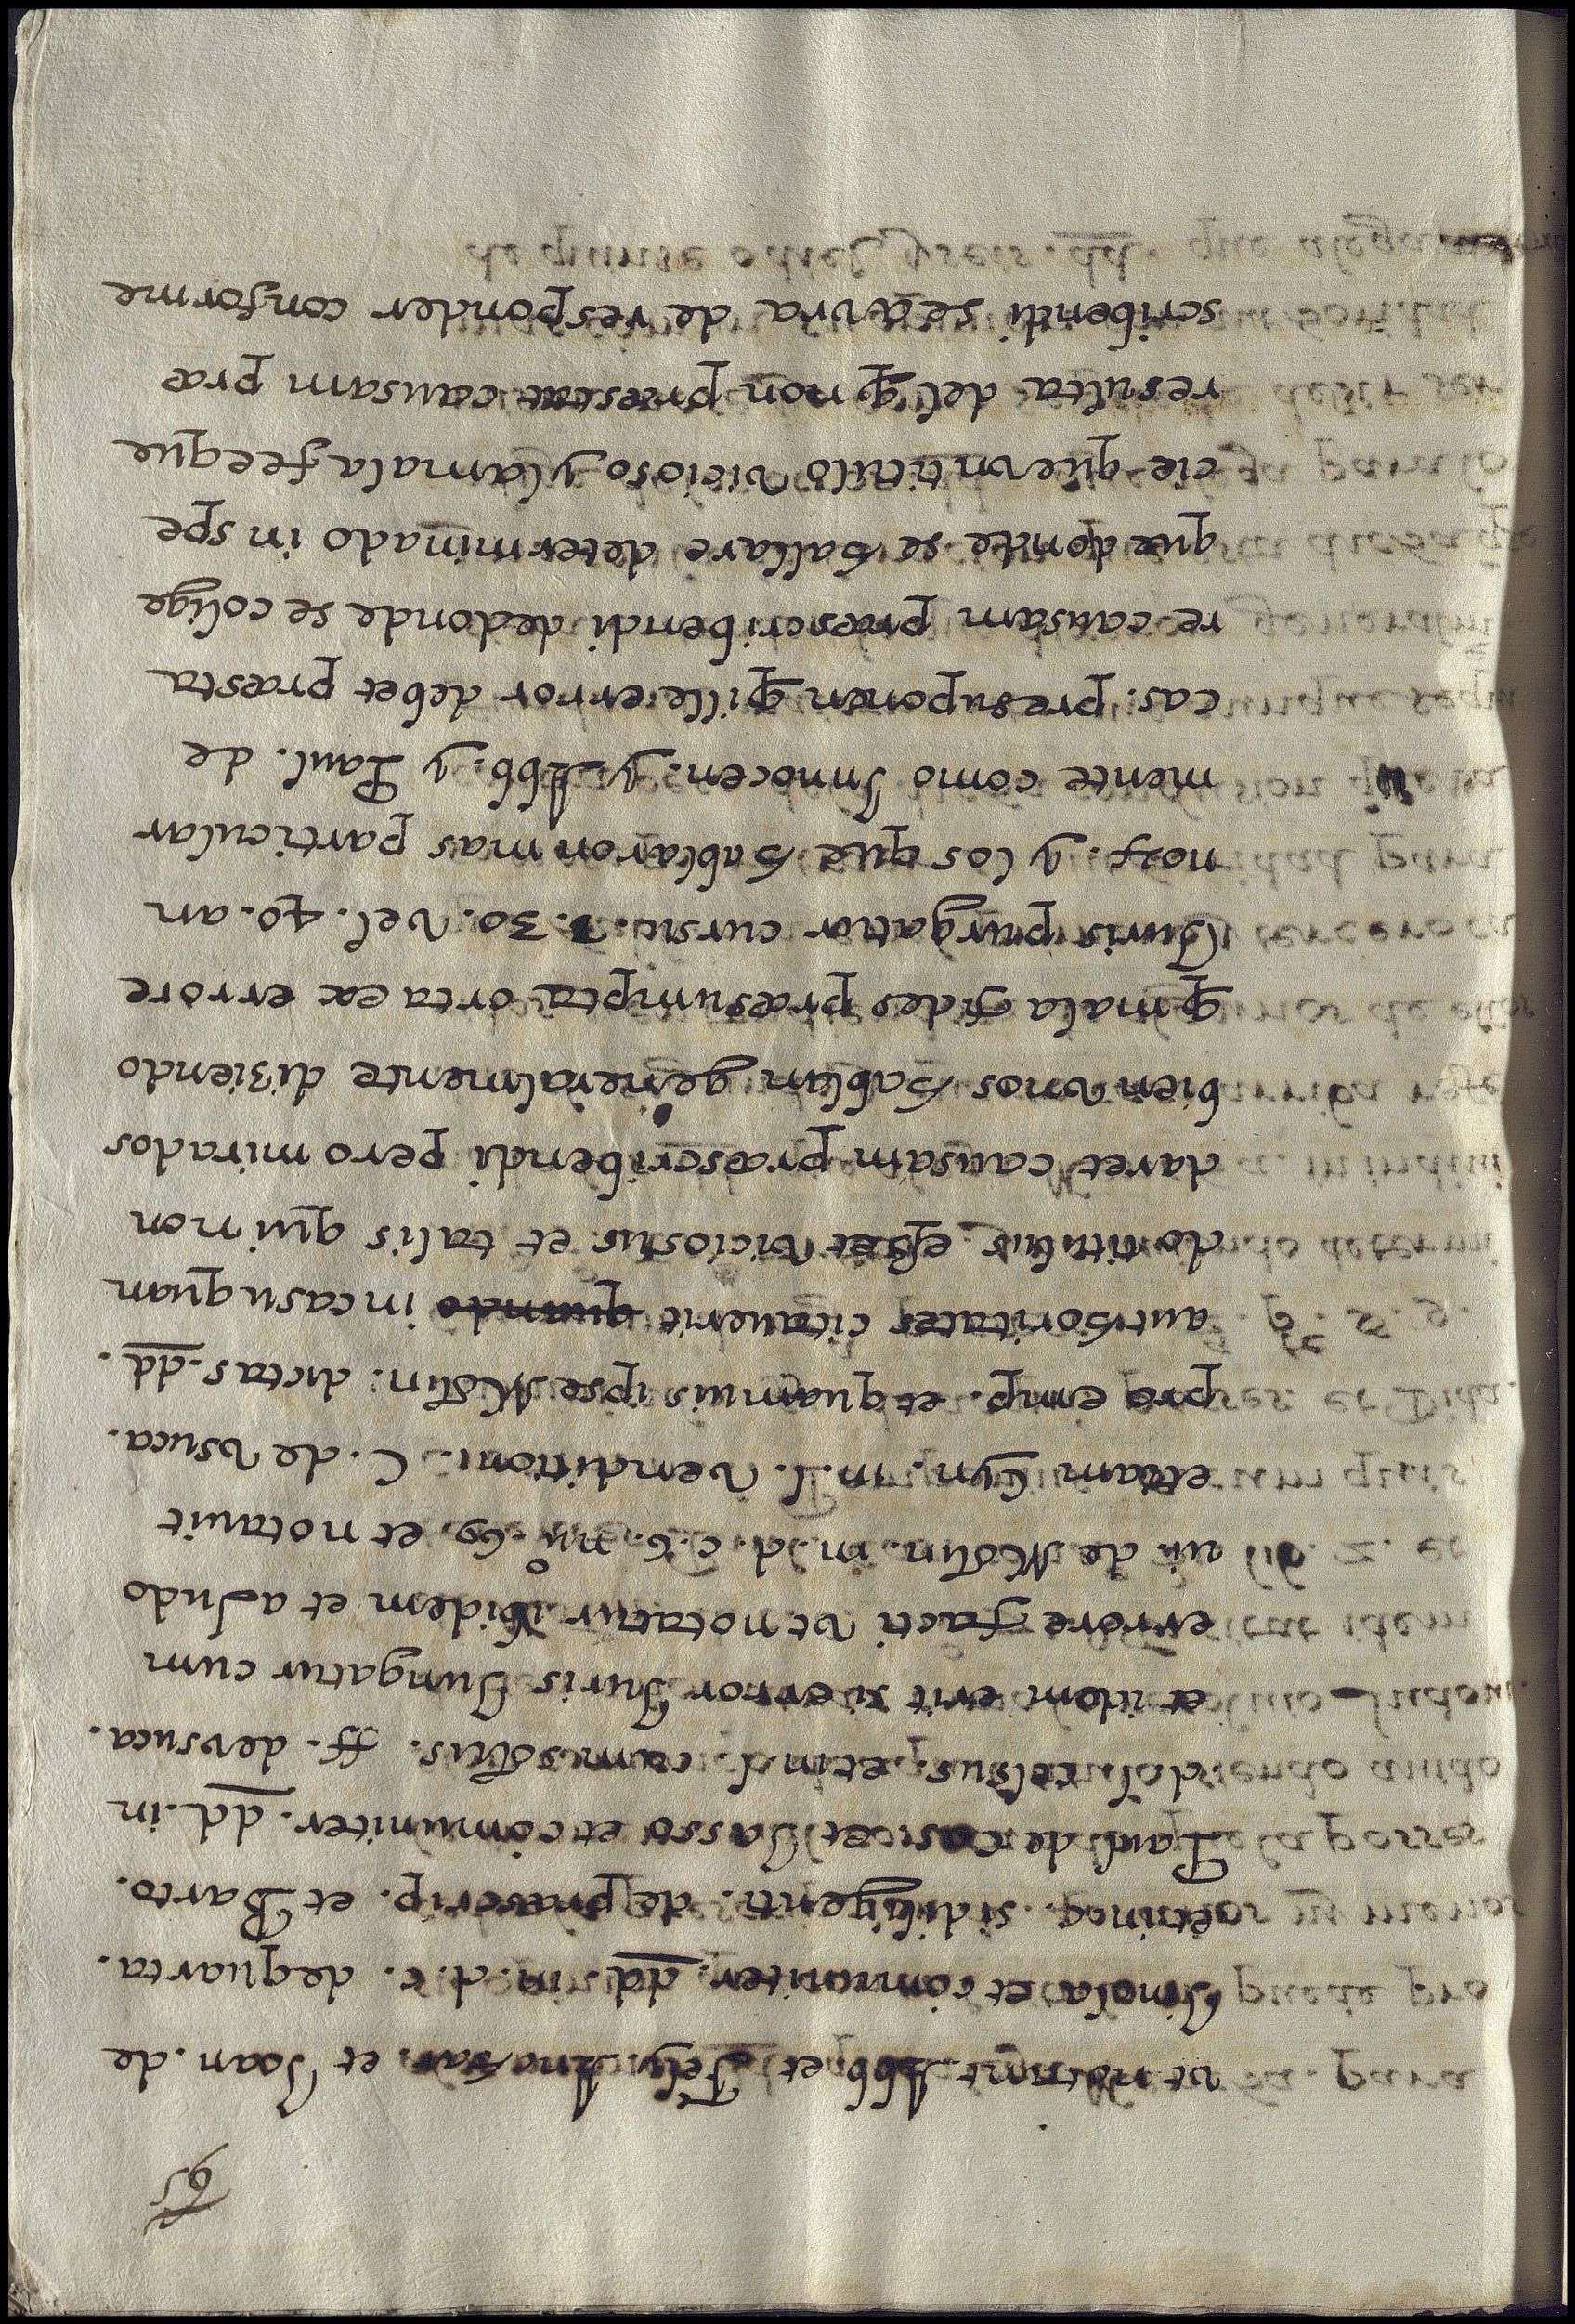 65
vt notant Abb. et Fely. Ancha. et Joan. de
Jmola et comuniter. dd. in. d. c. de quarta.
et in. c. si diligenti. de præscrip. et Barto.
Paul. de Cas. et Jasso et comuniter. dd. in
l. Celsus. et in l. cum solus. ff. de vsuca.
et idem erit si error Juris Jungatur cum
errore facti vt notatur ibidem et a Ludo
ui. de Molin. in. d. c. 6. nuº. 69. et notauit
etiam Cyn. in. l. venditioni. C. de vsuca.
pro emp. et quamuis ipse Molin: dictas. dd.
authoritates citauerit quando in casu quan
do titulus esset viciosus et talis qui non
daret causam præscribendi pero mirados
bien vnos hablan generalmente diziendo
q mala fides præsumpta orta ex errore
Juris purgatur cursu. 30. vel. 40. an
nos. y los que hablaron mas particular
mente como Jnnocen. y Abb. y Paul. de
cas. presuponen q ille error debet præsta
re causam præscribendi de donde se colige
que donde se hallare determinado in spe
cie que vn titulo vicioso y la mala fee que
resulta del q non præstat causam præ
scribendi se avra de responder conforme